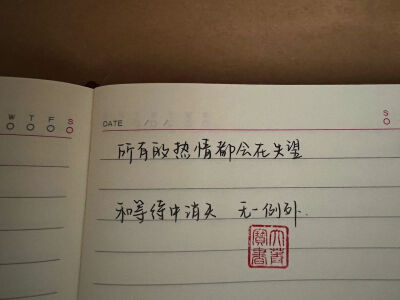 W T F S
DATE
S
所有的热情都会在失望
和等待中消失 无一例外.